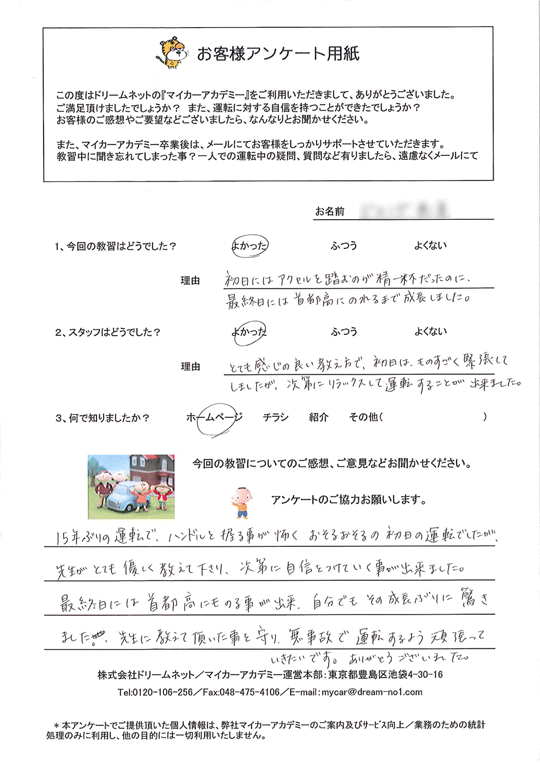 お客様アンケート用紙
この度はドリームネットの『マイカーアカデミー』をご利用いただきまして、ありがとうございました。
ご満足頂けましたでしょうか？ また、運転に対する自信を持つことができたでしょうか？
お客様のご感想やご要望などございましたら、なんなりとお聞かせください。
また、マイカーアカデミー卒業後は、メールにてお客様をしっかりサポートさせていただきます。
教習中に聞き忘れてしまった事？一人での運転中の疑問、質問など有りましたら、遠慮なくメールにて
お名前
1、今回の教習はどうでした？ よかった ふつう よくない
理由 初日にはアクセルを踏むのが精一杯だったのに、
最終日には首都高にのれるまで成長しました。
2、スタッフはどうでした？ よかった ふつう よくない
理由 とても感じの良い教え方で、初日は、ものすごく緊張して
しましたが、次第にリラックスして運転することが出来ました。
3、何で知りましたか？ ホームページ チラシ 紹介 その他( )
今回の教習についてのご感想、ご意見などお聞かせください。
アンケートのご協力お願いします。
15年ぶりの運転で、ハンドルを握る事が怖く おそるおそるの初日の運転でしたが、
先生がとても優しく教えて下さり、次第に自信をつけていく事が出来ました。
最終日には首都高にものる事が出来、自分でもその成長ぶりに驚き
ました。先生に教えて頂いた事を守り、無事故で運転するよう頑張って
いきたいです。ありがとうございました。
株式会社ドリームネット／マイカーアカデミー運営本部：東京都豊島区池袋4-30-16
Tel:0120-106-256／Fax:048-475-4106／E-mail：mycar@dream-no1.com
＊本アンケートでご提供頂いた個人情報は、弊社マイカーアカデミーのご案内及びサービス向上／業務のための統計
処理のみに利用し、他の目的には一切利用いたしません。